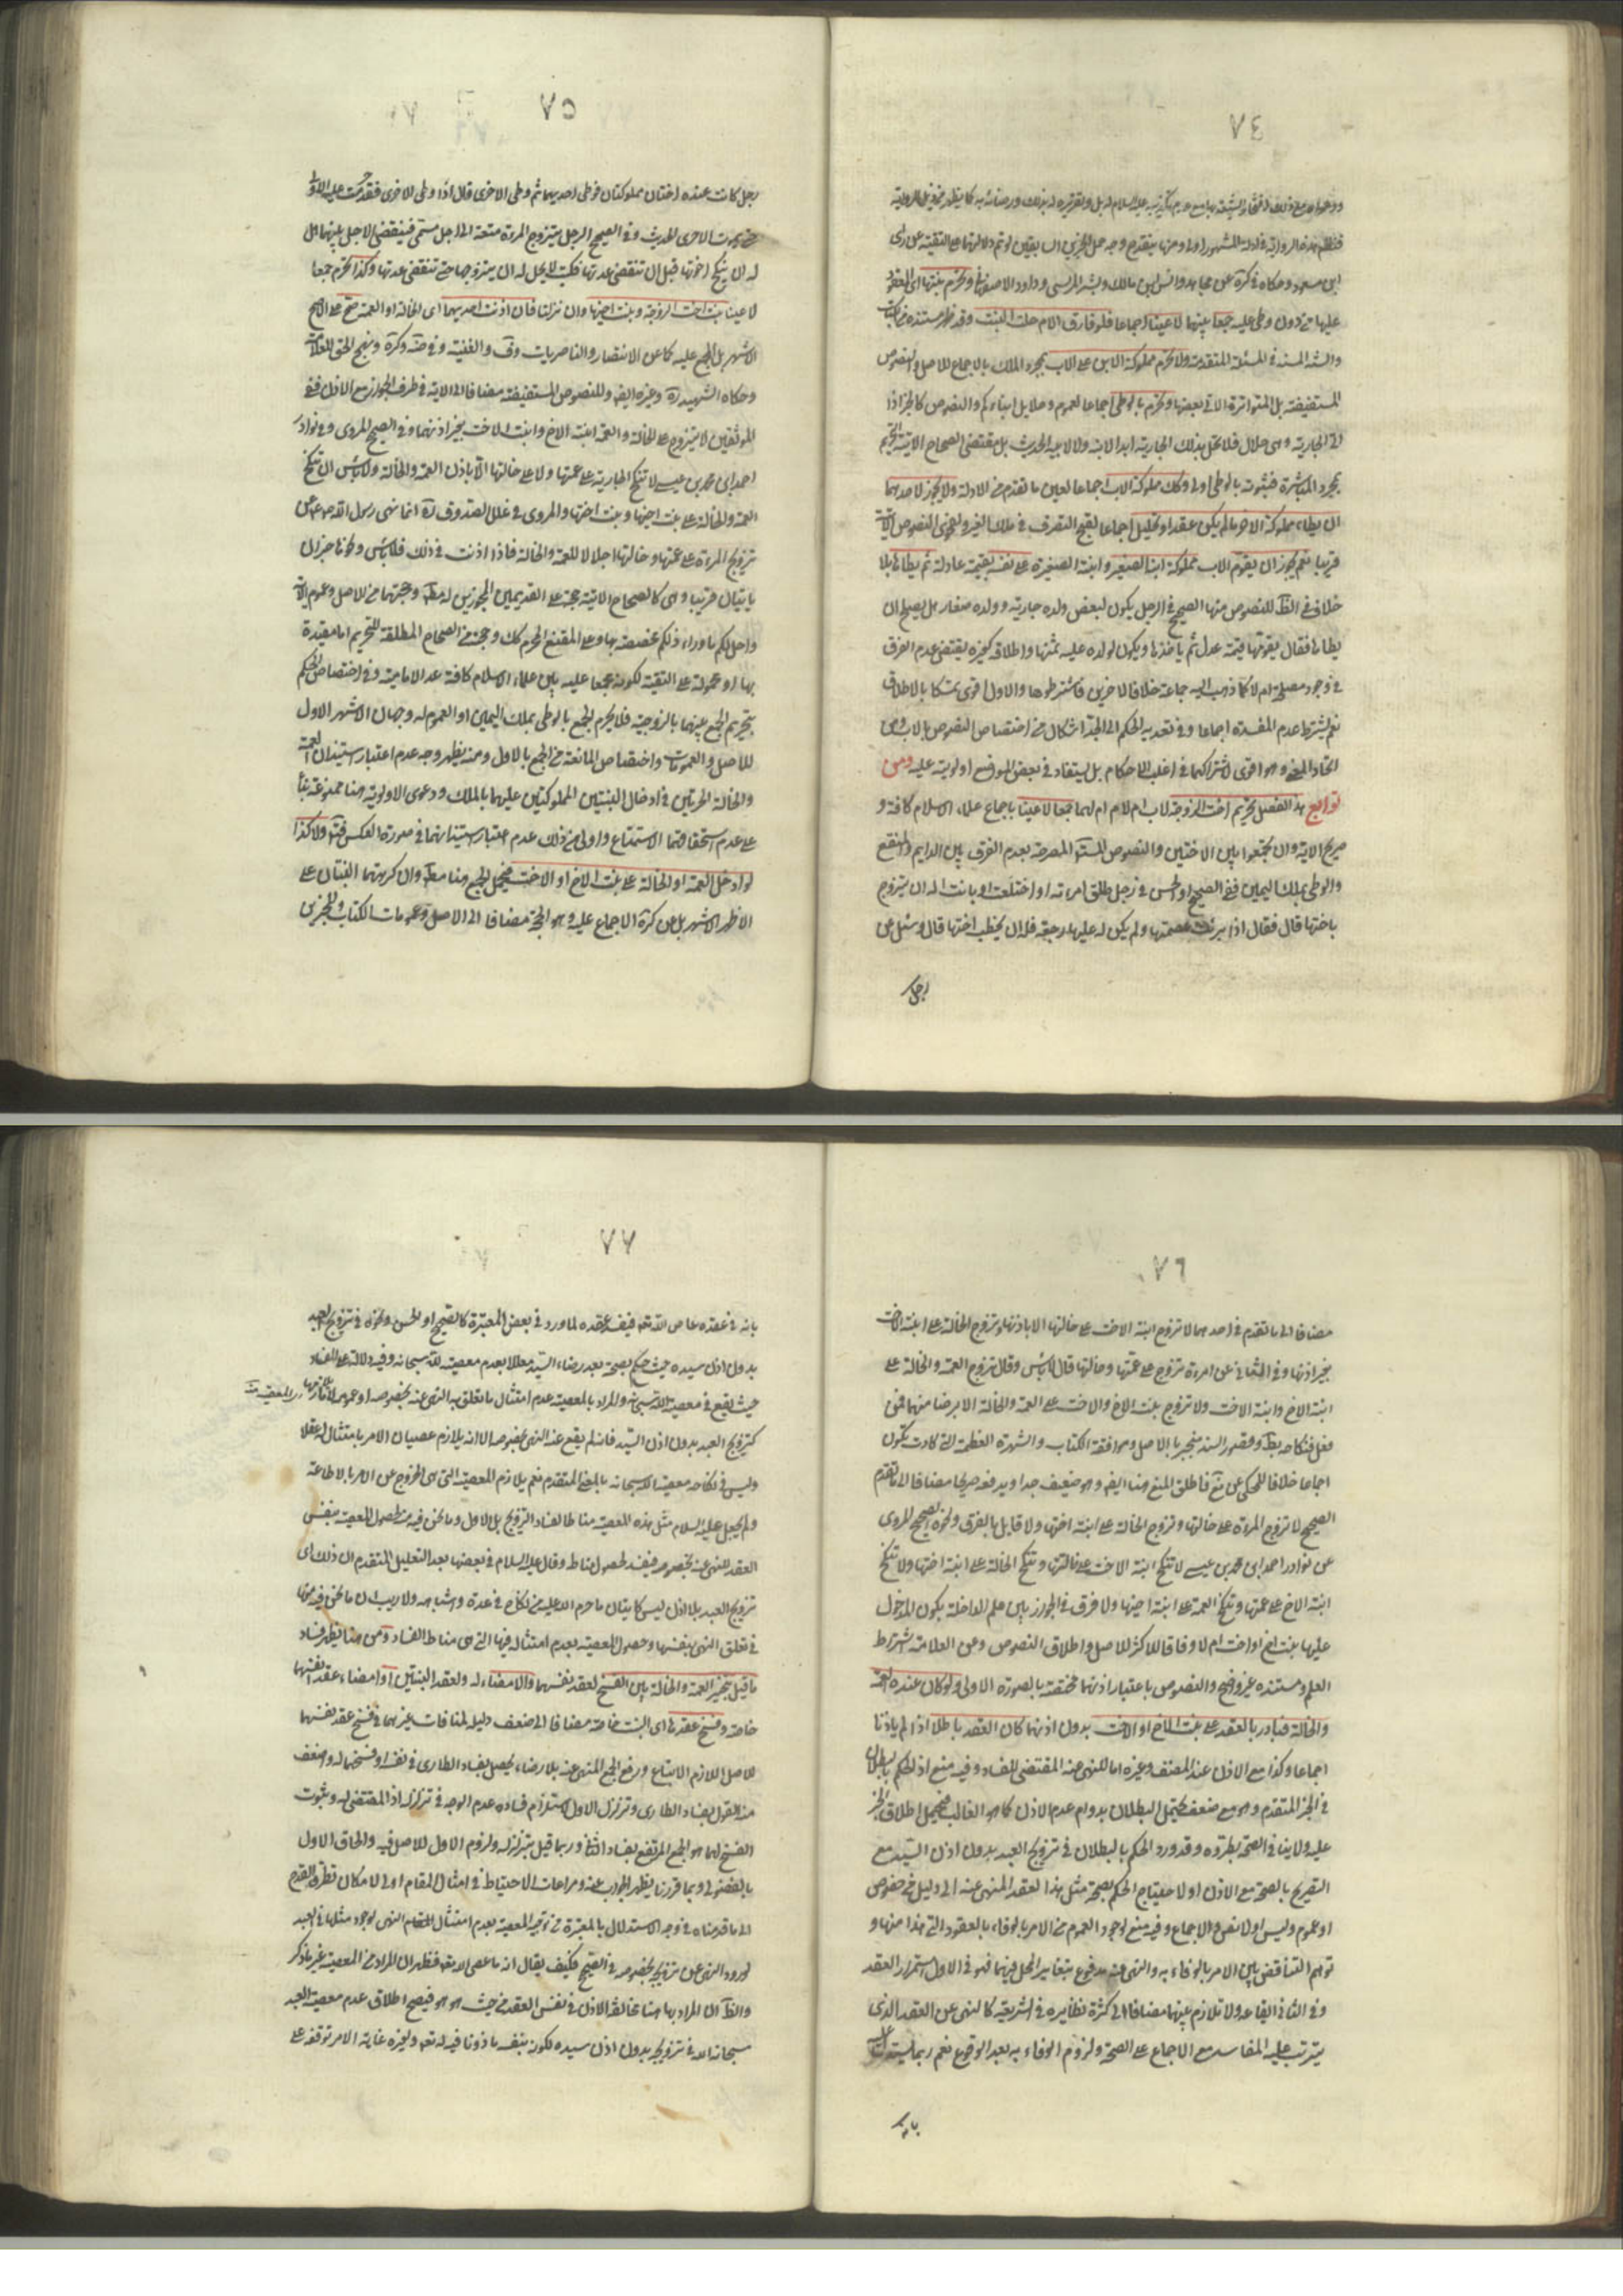 ٧٤
فنظم هذه الرواية في ادلة المشهور اولى ومنها ينقدح وجه حمل الخبرين السابقين لو تم دلالتهما على التقية
ابن مسعود وحكاه في كرة عن مجاهد وانس بن مالك وبشر المريسي وداود الاصفهاني وتحرم بنتها اي المعقود
عليها من دون وطى عليه جمعا بينها لا عينا اجماعا فلو فارق الام حلت البنت وقد ظهر مستنده من الكتاب
والسنة في المسئلة المتقدمة ولا تحرم مملوكة الابن على الاب بمجرد الملك بالاجماع للاصل والنصوص
المستفيضة بل المتواترة الاتي بعضها وتحرم بالوطى اجماعا لعموم وحلايل ابناءكم والنصوص كالخبر اذا
اتى الجارية وهي حلال فلا تحل بذلك الجارية ابدا لابنه ولا لابيه الحديث بل مقتضى الصحاح الاتية التحريم
بمجرد المباشرة فثبوته بالوطى اولى وكك مملوكة الاب اجماعا لعين ما تقدم من الادلة ولا يجوز لاحدهما
ان يطاء مملوكة الاخر ما لم يكن عقد او تحليل اجماعا لقبح التصرف في ملك الغير ولفحوى النصوص الاتية
قريبا نعم يجوز ان يقوم الاب مملوكة ابنه الصغير وابنته الصغيرة على نفسه بقيمة عادلة ثم يطائها بلا
خلاف في الظ للنصوص منها الصحيح في الرجل يكون لبعض ولده جارية وولده صغار هل يصلح ان
يطاها فقال يقومها قيمة عدل ثم ياخذها ويكون لولده عليه ثمنها واطلاقه كغيره يقتضي عدم الفرق
في وجود مصلحة ام لا كما ذهب اليه جماعة خلافا لاخرين فاشترطوها والاول اقوى تمسكا بالاطلاق
نعم يشترط عدم المفسدة اجماعا وفي تعديه الحكم الى الجد اشكال من اختصاص النصوص بالاب ومن
اتحاد المعنى وهو اقوى لاشتراكهما في اغلب الاحكام بل يستفاد في بعض المواضع اولويته عليه ومن
توابع هذا الفصل تحريم اخت الزوجة لاب ام لام ام لهما جمعا لا عينا باجماع علماء الاسلام كافة و
صريح الاية وان تجمعوا بين الاختين والنصوص المستفيضة المصرحة بعدم الفرق بين الدايم والمنقطع
والوطى بملك اليمين ففي الصحيح او الحسن في رجل طلق امراته او اختلعت او بانت اله ان يتزوج
باختها قال فقال اذا برئت عصمتها ولم يكن له عليها رجعة فله ان يخطب اختها قال وسئل عن
رجل
٧٥
رجل كانت عنده اختان مملوكتان فوطى احديهما ثم وطى الاخرى قال اذا وطى الاخرى فقد حرمت عليه الاولى
حتى تموت الاخرى الحديث وفي الصحيح الرجل يتزوج المراة متعة الى اجل مسمى فينقضي الاجل بينهما هل
له ان ينكح اختها قبل ان تنقضي عدتها فكتب لا يحل له ان يتزوجها حتى تنقضي عدتها وكذا تحرم جمعا
لا عينا بنت اخت الزوجة وبنت اخيها وان نزلتا فان اذنت احديهما اي الخالة او العمة صح على الاصح
الاشهر بل المجمع عليه كما عن الانتصار والناصريات وف والغنية وفي ضة وكرة ونهج الحق للعلامة
وحكاه الشهيد ره وغيره ايضا وللنصوص المستفيضة مضافا الى الاية في طرف الجواز مع الاذن ففي
الموثقين لا يتزوج على الخالة والعمة ابنة الاخ وابنت الاخت بغير اذنهما وفي الصحيح المروي وفي نوادر
احمد ابن محمد بن عيسى لا تنكح الجارية على عمتها ولا على خالتها الا باذن العمة والخالة ولا باس ان تنكح
العمة والخالة على بنت اخيها وبنت اختها والمروي في علل الصدوق ره انما نهى رسول الله ص عن
تزويج المراة على عمتها وخالتها اجلالا للعمة والخالة فاذا اذنت في ذلك فلا باس وكاناخبران
ياتيان قريبا وهي كالصحاح الاتية حجة على القديمين المجوزين له مط وحجتهما من الاصل وعموم الاية
واحل لكم ما وراء ذلكم مخصصة بها وعلى المقنع المحرم كك وحجته من الصحاح المطلقة للتحريم اما مقيدة
بها او محمولة على التقية لكونه مجمعا عليه بين علماء الاسلام كافة عدا الامامية وفي اختصاص الحكم
بتحريم الجمع بينهما بالزوجية فلا يحرم الجمع بالوطى بملك اليمين او العموم له وجهان الاشهر الاول
للاصل والعمومات واختصاص المانعة من الجمع بالاول ومنه يظهر وجه عدم اعتبار استيذان العمة
والخالة الحرتين في ادخال البنتين المملوكتين عليهما بالملك ودعوى الاولوية هنا ممنوعة بناء
على عدم استحقاقهما الاستمتاع واولى من ذلك عدم اعتبار استيذانهما في صورة العكس فت ولا كذا
لو ادخل العمة او الخالة على بنت الاخ او الاخت فيحل الجمع هنا مط وان كرهتهما البنتان على
الاظهر الاشهر بل عن كرة الاجماع عليه وهو الحجة مضافا الى الاصل وعمومات الكتاب والخبرين
٧٦
مضافا الى ما تقدم في احدهما لا تزوج ابنة الاخت على خالتها الا باذنها وتزوج الخالة على ابنة الاخت
بغير اذنها وفي الثاني عن امرءة تزوج على عمتها وخالتها قال لا باس وقال تزوج العمة والخالة على
ابنة الاخ وابنة الاخت ولا تزوج بنت الاخ والاخت على العمة والخالة الا برضا منهما فمن
فعل فنكاحه بط وقصور السند منجبر بالاصل وموافقة الكتاب والشهرة العظيمة التي كادت تكون
اجماعا خلافا للمحكي عن نع فاطلق المنع هنا ايضا وهو ضعيف جدا ويدفعه صريحا مضافا الى ما تقدم
الصحيح لا تزوج المراة على خالتها وتزوج الخالة على ابنة اختها ولا قايل بالفرق ونحوه الصحيح المروي
عن نوادر احمد ابن محمد بن عيسى لا تنكح ابنة الاخت على خالتها وتنكح الخالة على ابنة اختها ولا تنكح
ابنة الاخ على عمتها وتنكح العمة على ابنة اخيها ولا فرق في الجواز بين علم الداخلة بكون المدخول
عليها بنت اخ او اخت ام لا وفاقا للاكثر للاصل واطلاق النصوص وعن العلامة اشتراط
العلم ومستنده غير واضح والنصوص باعتبار اذنهما مختصة بالصورة الاولى ولو كان عنده العمة
والخالة فبادر بالعقد على بنت الاخ او الاخت بدون اذنهما كان العقد باطلا اذا لم ياذنا
اجماعا وكذا مع الاذن عند المصنف وغيره اما للنهي عنه المقتضي للفساد وفيه منع اذ الحكم بالبطلان
في الخبر المتقدم وهو مع ضعفه يحتمل البطلان بدوام عدم الاذن كما هو الغالب فيحمل اطلاق الخبر
عليه ولا ينافي الصحة بطروه وقد ورد الحكم بالبطلان في تزويج العبد بدون اذن السيد مع
التصريح بالصحة مع الاذن او لاحتياج الحكم بصحة مثل هذا العقد المنهي عنه الى دليل من خصوص
او عموم وليس اولا نص ولا اجماع وفيه منع لوجود العموم من الامر بالوفاء بالعقود التي هذا منها و
توهم التناقض بين الامر بالوفاء به والنهي عنه مدفوع بتغاير المحل فيهما فهو في الاول استمرار العقد
وفي الثاني ايقاعه ولا تلازم بينهما مضافا الى كثرة نظايره في الشريعة كالنهي عن العقد الذي
يترتب عليه المفاسد مع الاجماع على الصحة ولزوم الوفاء به بعد الوقوع نعم ربما يستدل
بانه
٧٧
بانه في عقده عاص لله تعالى فيفسد عقده لما ورد في بعض المعتبرة كالصحيح او الحسن ونحوه في تزويج العبد
بدون اذن سيده حيث حكم بصحته بعد رضاء السيد معللا بعدم معصيته لله سبحانه وفيه دلالة على الفساد
حيث يقع في معصية الله سبحانه والمراد بالمعصية عدم امتثال ما تعلق به النهي عنه بخصوصه او عموم
كتزويج العبد بدون اذن السيد فانه لم يقع عنه النهي بخصوصه الا انه يلازم عصيان الامر بامتثاله عقلا
وليس في نكاحه معصية الله سبحانه بالمعنى المتقدم نعم يلازم المعصية التي هي الخروج عن الامر بالاطاعة
ولم يجعل عليه السلام مثل هذه المعصية مناطا لفساد التزويج بل الاول وما نحن فيه من حصول المعصية بنفس
العقد للنهي عنه بخصوصه فيفسد لحصول مناطه وقال عليه السلام في بعضها بعد التعليل المتقدم ان ذلك اي
تزويج العبد بلا اذن ليس كاتيان ما حرم الله عليه من نكاح في عدة واشباهه ولا ريب ان ما نحن فيه منها
في تعلق النهي بنفسها وحصول المعصية بعدم امتثاله فيها التي هي مناط الفساد ومن هنا يظهر فساد
ما قيل بتخيير العمة والخالة بين الفسخ لعقد نفسهما والامضاء له ولعقد البنتين او امضاء عقد نفسهما
خاصة وفسخ عقدها اي البنت خاصة مضافا الى ضعف دليله لمنافات غيرهما في فسخ عقد نفسهما
للاصل اللازم الاتباع ورفع الجمع المنهي عنه بلا رضاء يحصل بفساد الطاري في نفسه او فسخهما له واضعف
منه القول بفساد الطاري وتزلزل الاول لاستلزام فساده عدم الوجه في تزلزله اذ المقتضي له وثبوت
الفسخ لهما هو الجمع المرتفع بفساد الثاني وربما قيل بتزلزله ولزوم الاول للاصل فيه والحاق الاول
بالفضولي وبما قررنا يظهر الجواب عنه ومراعات الاحتياط في امثال المقام اولى لامكان تطرق القدح
الى ما قدمناه في وجه الاستدلال بالمعتبرة من توجيه المعصية بعدم امتثال المقام النهي لوجود مثلها في العبد
لورود النهي عن تزويجه بخصوصه في الصحيح فكيف يقال انه ما عصى الله تعالى فظهر ان المراد من المعصية غير ما ذكر
والظ ان المراد بها هنا مخالفة الاذن في نفس العقد من حيث هو هو فيصح اطلاق عدم معصية العبد
سبحانه الله في تزويجه بدون اذن سيده لكونه بنفسه ماذونا فيه له تعالى ولغيره غاية الامر توقفه على